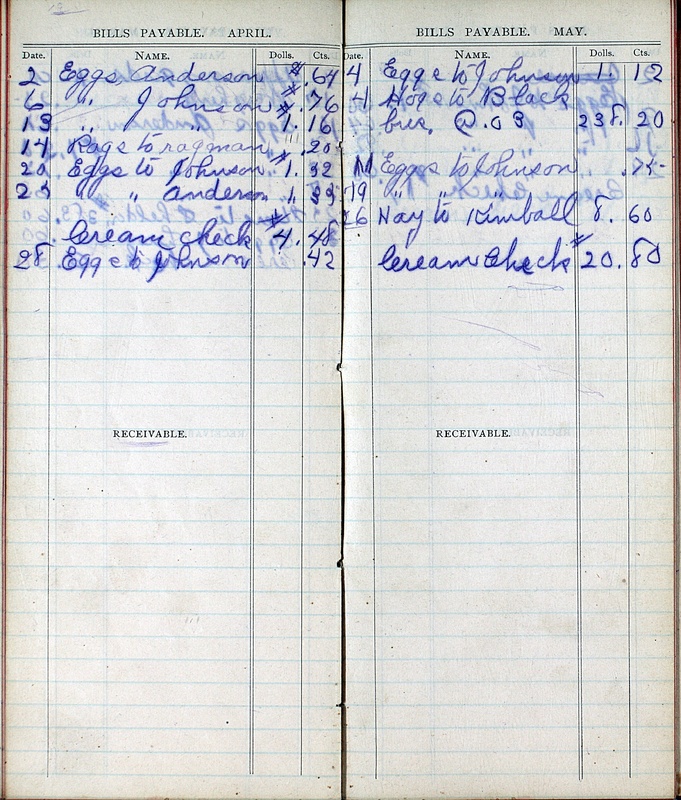 BILLS PAYABLE. APRIL.
Date. NAME. Dolls. Cts.
2 Eggs Anderson $ .64
6 " Johnson $ .76
13 " " 1.16
14 Rags to ragman .20
20 Eggs to Johnson 1.32
" Anderson 1.
Cream check $4.48
28 Eggs to Johnson .42
RECEIVABLE.
BILLS PAYABLE. MAY.
Date. NAME. Dolls. Cts.
4 Eggs to Johnson 1.12
Hogs to Black
@ .03 238.20
Eggs to Johnson .75
19 " " "
26 Hay to Kimball 8.60
Cream Check $20.80
RECEIVABLE.